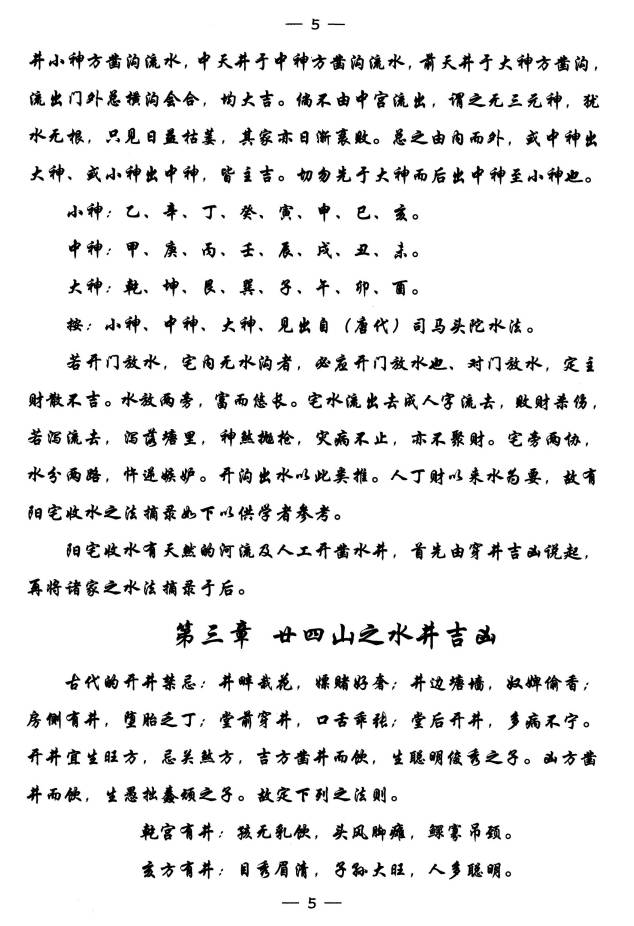 — 5 —
井小神方凿沟流水，中天井于中神方凿沟流水，前天井于大神方凿沟，
流出门外总横沟会合，均大吉。倘不由中宫流出，谓之无三元神，犹
水无根，只见日益枯萎，其家亦日渐衰败。总之由内而外，或中神出
大神、或小神出中神，皆主吉。切勿先于大神而后出中神至小神也。
小神：乙、辛、丁、癸、寅、申、巳、亥。
中神：甲、庚、丙、壬、辰、戌、丑、未。
大神：乾、坤、艮、巽、子、午、卯、酉。
按：小神、中神、大神、见出自（唐代）司马头陀水法。
若开门放水，宅内无水沟者，必应开门放水也、对门放水，定主
财散不吉。水放两旁，富而悠长。宅水流出去成人字流去，败财杀伤，
若泻流去，泻落塘里，神煞抛枪，灾病不止，亦不聚财。宅旁两协，
水分两路，忤逆嫉妒。开沟出水以此类推。人丁财以来水为要，故有
阳宅收水之法摘录如下以供学者参考。
阳宅收水有天然的河流及人工开凿水井，首先由穿井吉凶说起，
再将诸家之水法摘录于后。
第三章 廿四山之水井吉凶
古代的开井禁忌：井畔栽花，嫖赌好奢；井边塘墙，奴婢偷香；
房侧有井，堕胎之丁；堂前穿井，口舌乖张；堂后开井，多病不宁。
开井宜生旺方，忌关煞方，吉方凿井而饮，生聪明俊秀之子。凶方凿
井而饮，生愚拙蠢顽之子。故定下列之法则。
乾宫有井：孩无乳饮，头风脚瘫，鳏寡吊颈。
亥方有井：目秀眉清，子孙大旺，人多聪明。
— 5 —